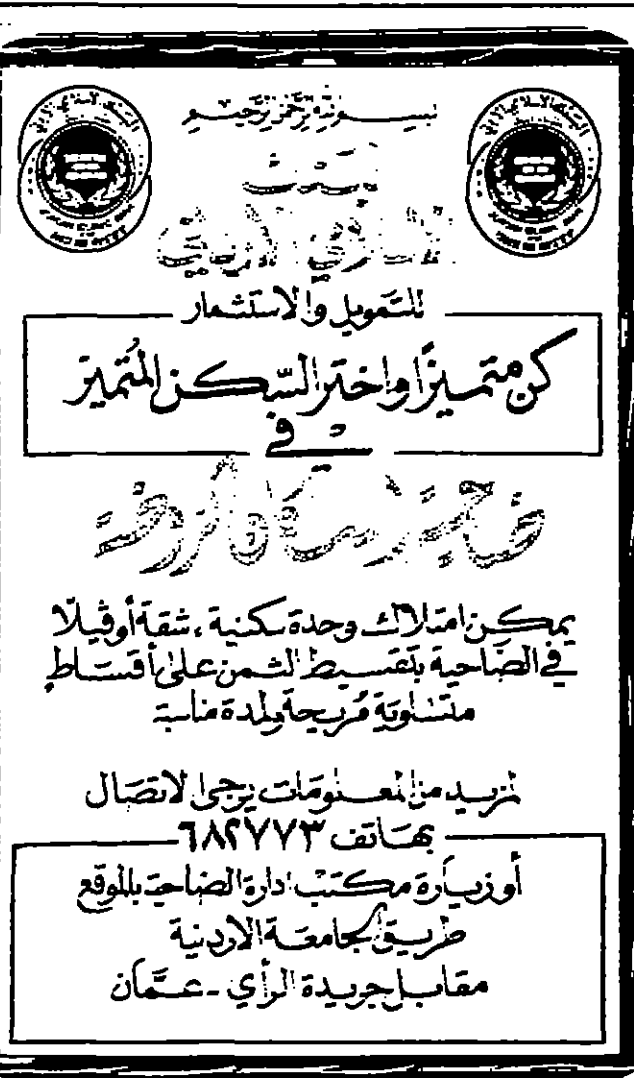 بسم الله الرحمن الرحيم
البنك
الإسلامي الأردني
للتمويل والاستثمار
كن متميزًا واختر السّكن المُتميز
في
ضاحية إسكان الروضة
يمكن امتلاك وحدة سكنية ، شقة أو ڤيلا
في الضّاحية بتقسيط الثمن على أقساط
متساوية مُريحة ولمدة مناسبة
لمزيد من المعلومات يرجى الاتصال
بهاتف ٦٨٢٧٧٣
أو زيارة مكتب ادارة الضاحية بالموقع
طريق الجامعة الاردنية
مقابل جريدة الرأي - عمّان